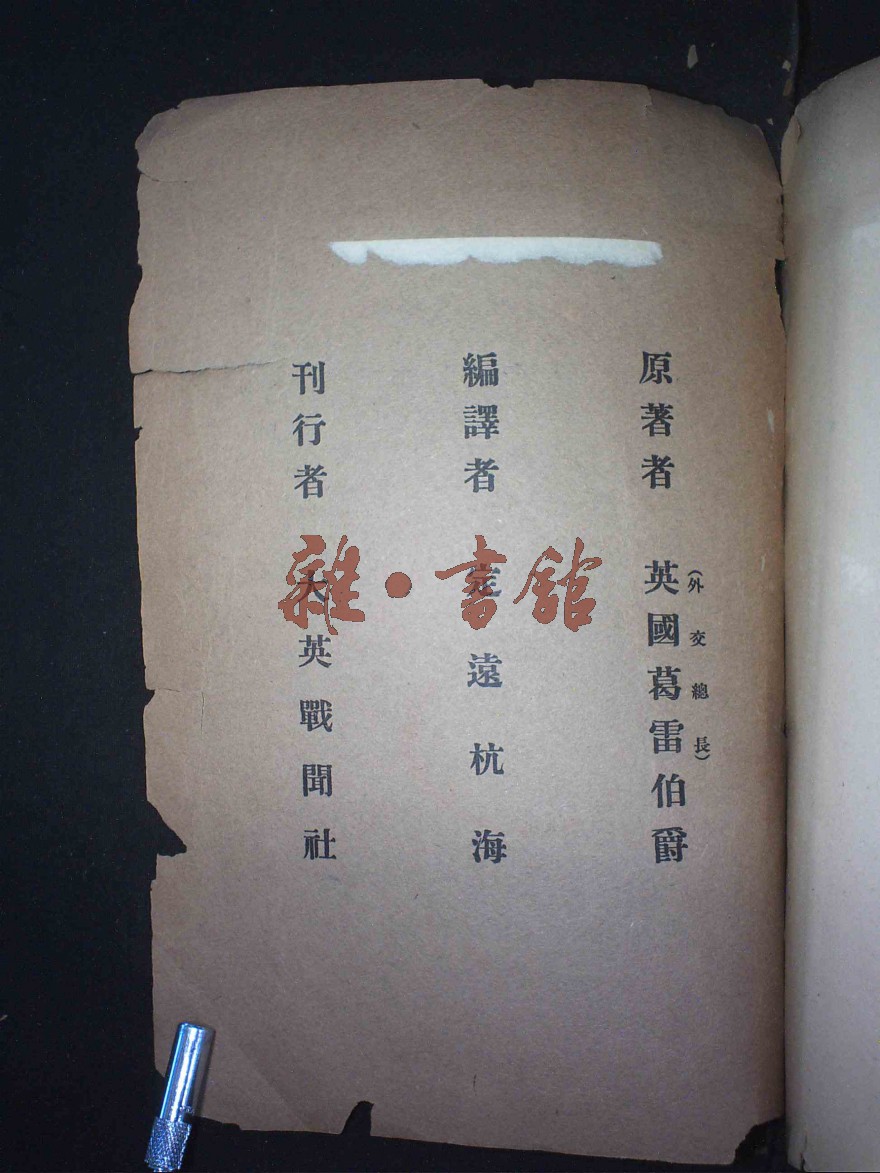 原著者 英國葛雷伯爵
(外交總長)
編譯者 定遠杭海
刊行者 大英戰聞社
雜·書館